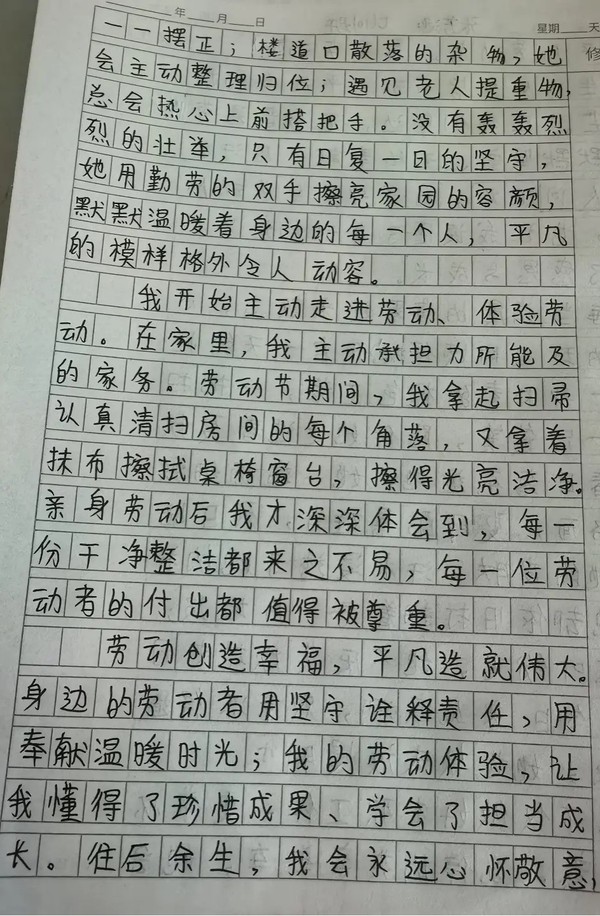 年 月 日 星期 天
一一摆正；楼道口散落的杂物，她
修
会主动整理归位；遇见老人提重物，
总会热心上前搭把手。没有轰轰烈
烈的壮举，只有日复一日的坚守，
她用勤劳的双手擦亮家园的容颜，
默默温暖着身边的每一个人，平凡
的模样格外令人动容。
我开始主动走进劳动、体验劳
动。在家里，我主动承担力所能及
的家务。劳动节期间，我拿起扫帚
认真清扫房间的每个角落，又拿着
抹布擦拭桌椅窗台，擦得光亮洁净。
亲身劳动后我才深深体会到，每一
份干净整洁都来之不易，每一位劳
动者的付出都值得被尊重。
劳动创造幸福，平凡造就伟大。
身边的劳动者用坚守诠释责任，用
奉献温暖时光；我的劳动体验，让
我懂得了珍惜成果、学会了担当成
长。往后余生，我会永远心怀敬意，